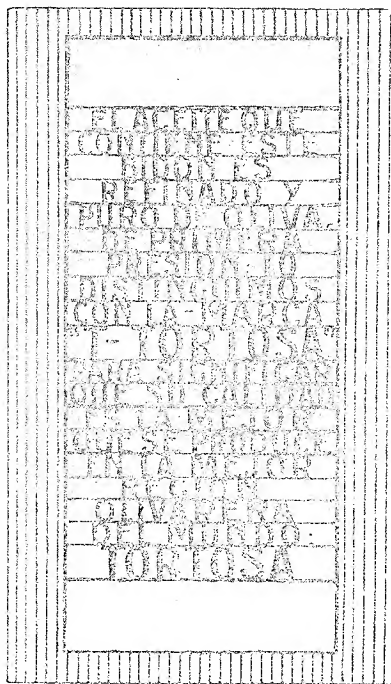 EL ACEITE QUE
CONTIENE ESTE
BIDON ES
REFINADO Y
PURO DE OLIVA.
DE PRIMERA
PRESION LO
DISTINGUIMOS
CON LA MARCA
"I-TORTOSA"
PARA SIGNIFICAR
QUE SU CALIDAD
ES LA MEJOR
QUE SE PRODUCE
EN LA MEJOR
REGION
OLIVARERA
DEL MUNDO:
TORTOSA